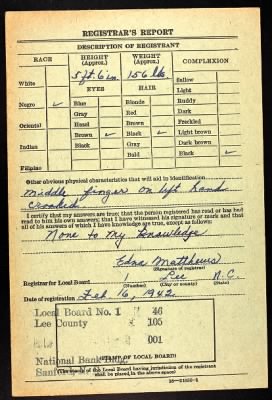 REGISTRAR'S REPORT
DESCRIPTION OF REGISTRANT
RACE HEIGHT (Approx.) WEIGHT (Approx.) COMPLEXION
5 ft. 6 in. 156 lbs.
White Sallow
EYES HAIR Light
Negro ✓ Blue Blonde Ruddy
Gray Red Dark
Oriental Hazel Brown Freckled
Brown ✓ Black ✓ Light brown
Indian Black Gray Dark brown
Bald Black ✓
Filipino
Other obvious physical characteristics that will aid in identification
Middle finger on left hand
crooked
I certify that my answers are true; that the person registered has read or has had
read to him his own answers; that I have witnessed his signature or mark and that
all of his answers of which I have knowledge are true, except as follows:
None to my Knowledge
Edna Matthews
(Signature of registrar)
Registrar for Local Board Lee N.C.
(Number) (City or county) (State)
Date of registration Feb. 16, 1942
Local Board No. 1 46
Lee County 105
001
National Bank Bldg.
(STAMP OF LOCAL BOARD)
(The stamp of the Local Board having jurisdiction of the registrant
shall be placed in the above space)